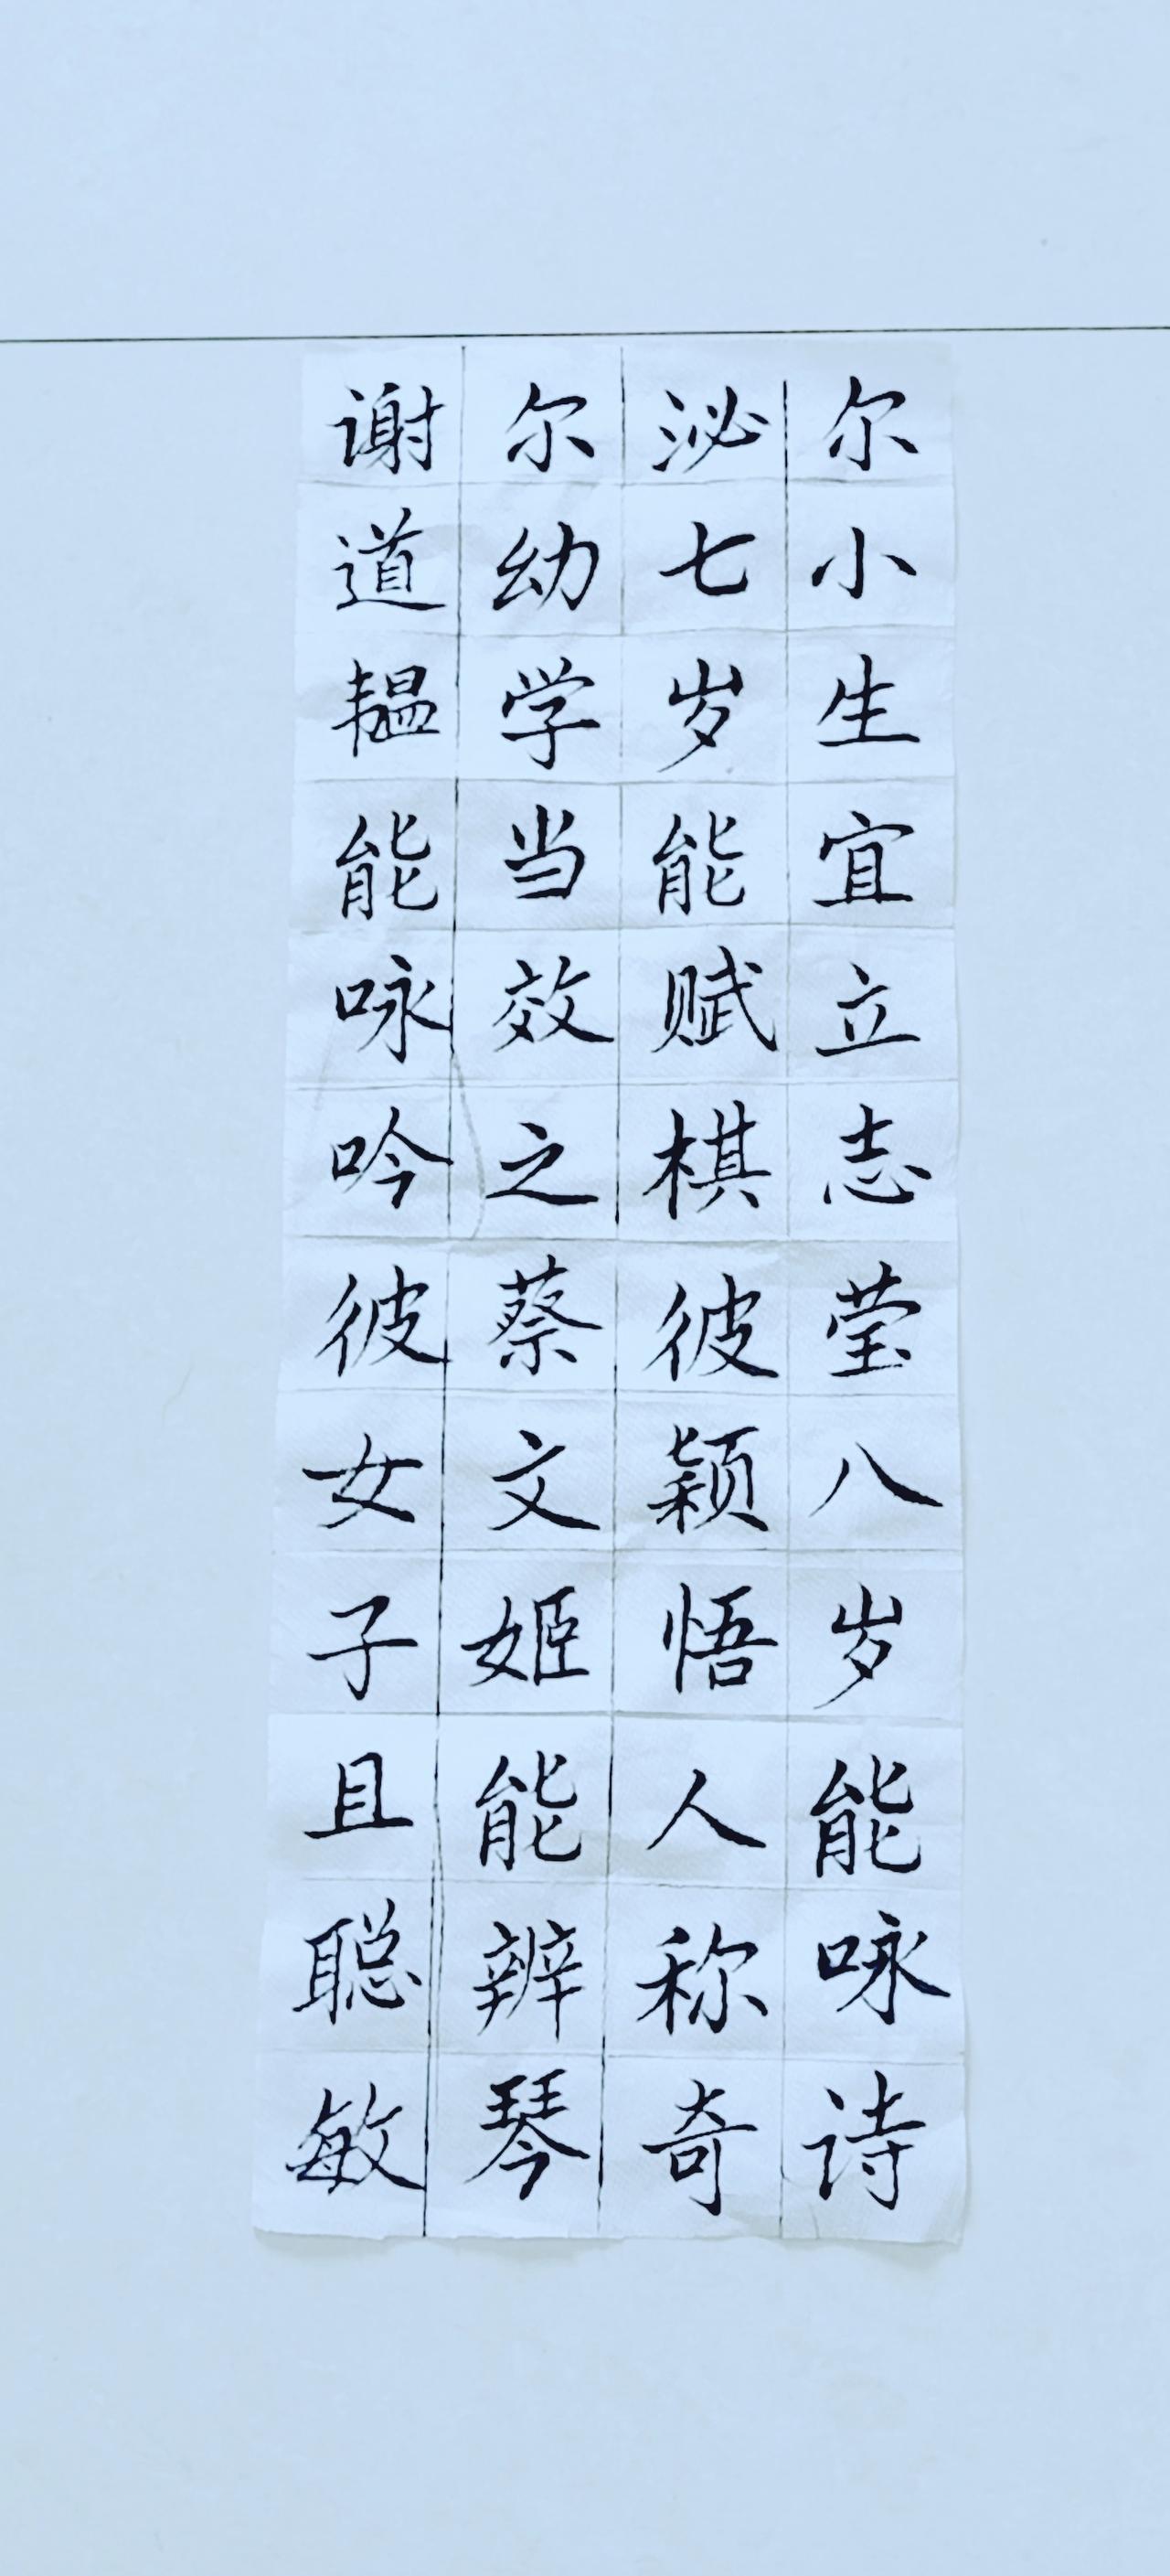 尔小生宜立志莹八岁能咏诗
泌七岁能赋棋彼颖悟人称奇
尔幼学当效之蔡文姬能辨琴
谢道韫能咏吟彼女子且聪敏